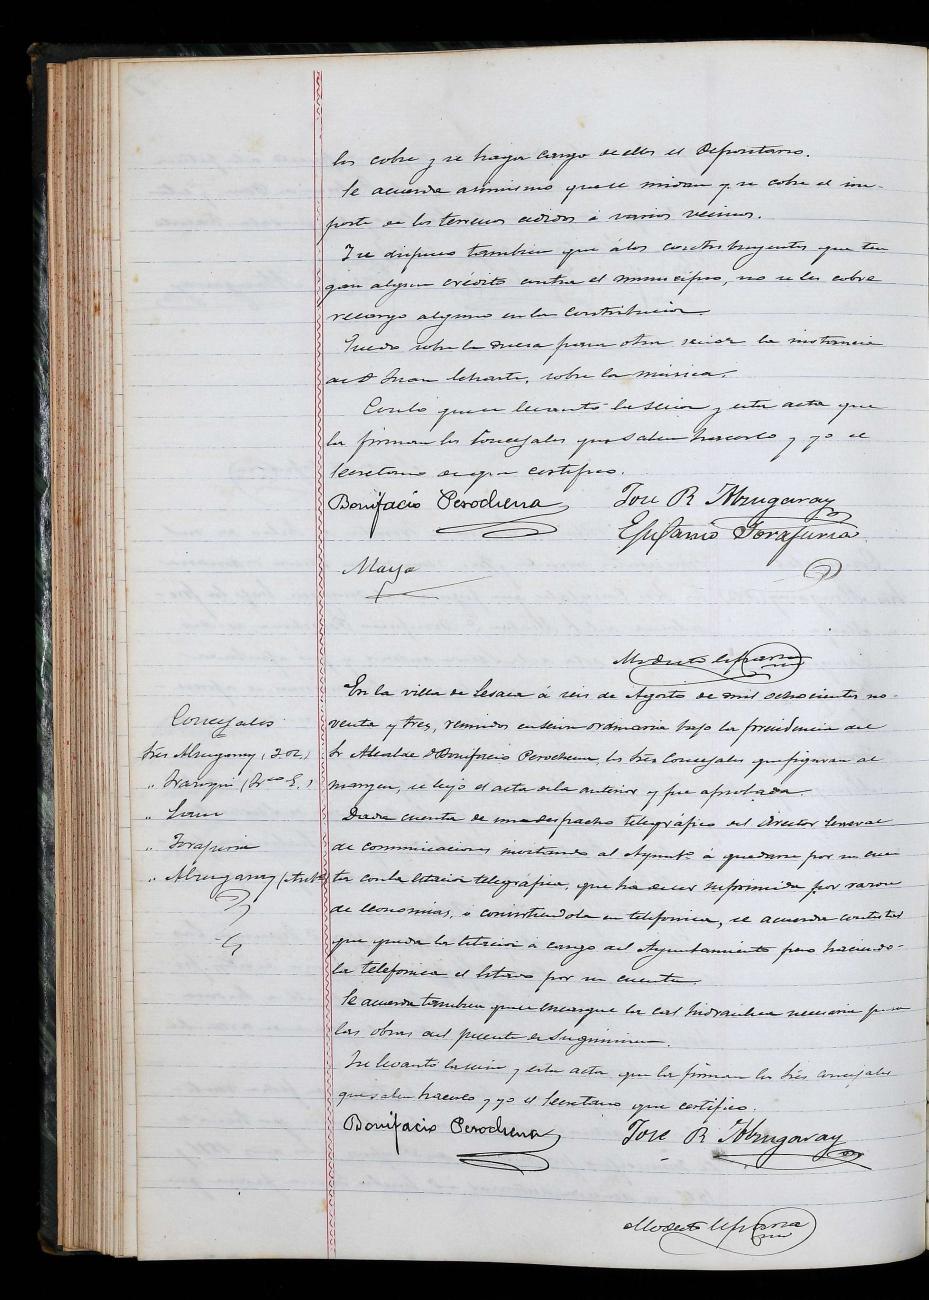 los cobre y se haga cargo de ellos el Depositario.
Se acuerda asimismo que se midan y se cobre el im-
porte de los terrenos cedidos á varios vecinos.
Y se dispuso tambien que á los contribuyentes que ten
gan algun crédito contra el municipio, no se les cobre
recargo alguno en la contribucion.
Quedó sobre la mesa para otra sesion la instancia
de D. Juan sobre la música.
Con lo que se levantó la sesion y esta acta que
la firman los Concejales que saben hacerlo y yo el
Secretario de que certifico.
Bonifacio Perochena José R Almugaray
Estanis
Maya
Modesto
En la villa de Lesaca á seis de Agosto de mil ochocientos no-
venta y tres, reunidos en sesion ordinaria bajo la presidencia del
Sr Alcalde D Bonifacio Perochena, los Sres Concejales que figuran al
margen, se leyó el acta de la anterior y fue aprobada.
Concejales
Sres Almugaray (J. R.)
" Irazoqui
"
"
" Almugaray (Ant)
Dada cuenta de un despacho telegráfico del Director General
de comunicaciones invitando al Ayunto á quedarse por su cuen
ta con la Estacion telegráfica, que ha de ser suprimida por razon
de economias, ó convirtiendola en telefonica, se acuerda contestar
que queda la Estacion á cargo del Ayuntamiento pero haciendo-
la telefonica el Estado por su cuenta.
Se acuerda tambien que se encargue la cal hidraulica necesaria para
las obras del puente de
Y se levantó la sesion y esta acta que la firman los Sres Concejales
que saben hacerlo y yo el Secretario que certifico.
Bonifacio Perochena José R Almugaray
Modesto